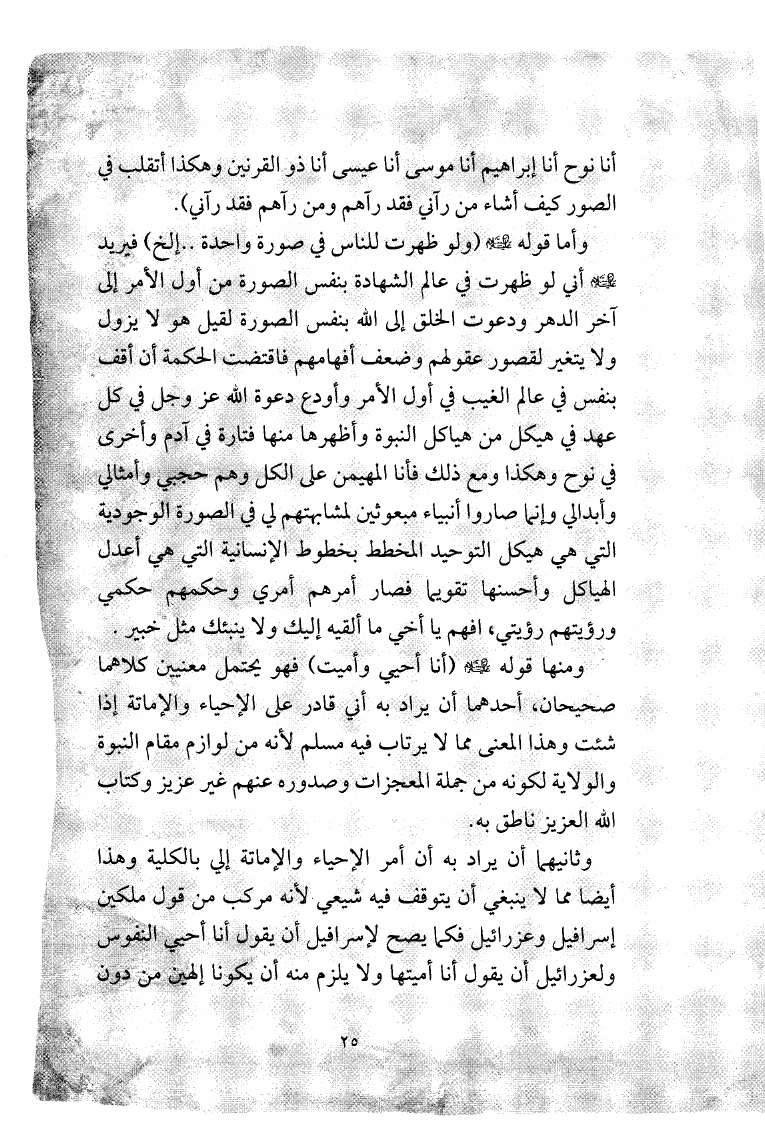 أنا نوح أنا إبراهيم أنا موسى أنا عيسى أنا ذو القرنين وهكذا أتقلب في
الصور كيف أشاء من رآني فقد رآهم ومن رآهم فقد رآني).
وأما قوله ﷺ (ولو ظهرت للناس في صورة واحدة ..إلخ) فيريد
ﷺ أني لو ظهرت في عالم الشهادة بنفس الصورة من أول الأمر إلى
آخر الدهر ودعوت الخلق إلى الله بنفس الصورة لقيل هو لا يزول
ولا يتغير لقصور عقولهم وضعف أفهامهم فاقتضت الحكمة أن أقف
بنفس في عالم الغيب في أول الأمر وأودع دعوة الله عز وجل في كل
عهد في هيكل من هياكل النبوة وأظهرها منها فتارة في آدم وأخرى
في نوح وهكذا ومع ذلك فأنا المهيمن على الكل وهم حجبي وأمثالي
وأبدالي وإنما صاروا أنبياء مبعوثين لمشابهتهم لي في الصورة الوجودية
التي هي هيكل التوحيد المخطط بخطوط الإنسانية التي هي أعدل
الهياكل وأحسنها تقويما فصار أمرهم أمري وحكمهم حكمي
ورؤيتهم رؤيتي، افهم يا أخي ما ألقيه إليك ولا ينبئك مثل خبير .
ومنها قوله ﷺ (أنا أحيي وأميت) فهو يحتمل معنيين كلاهما
صحيحان، أحدهما أن يراد به أني قادر على الإحياء والإماتة إذا
شئت وهذا المعنى مما لا يرتاب فيه مسلم لأنه من لوازم مقام النبوة
والولاية لكونه من جملة المعجزات وصدوره عنهم غير عزيز وكتاب
الله العزيز ناطق به.
وثانيهما أن يراد به أن أمر الإحياء والإماتة إلي بالكلية وهذا
أيضا مما لا ينبغي أن يتوقف فيه شيعي لأنه مركب من قول ملكين
إسرافيل وعزرائيل فكما يصح لإسرافيل أن يقول أنا أحيي النفوس
ولعزرائيل أن يقول أنا أميتها ولا يلزم منه أن يكونا إلهين من دون
٢٥